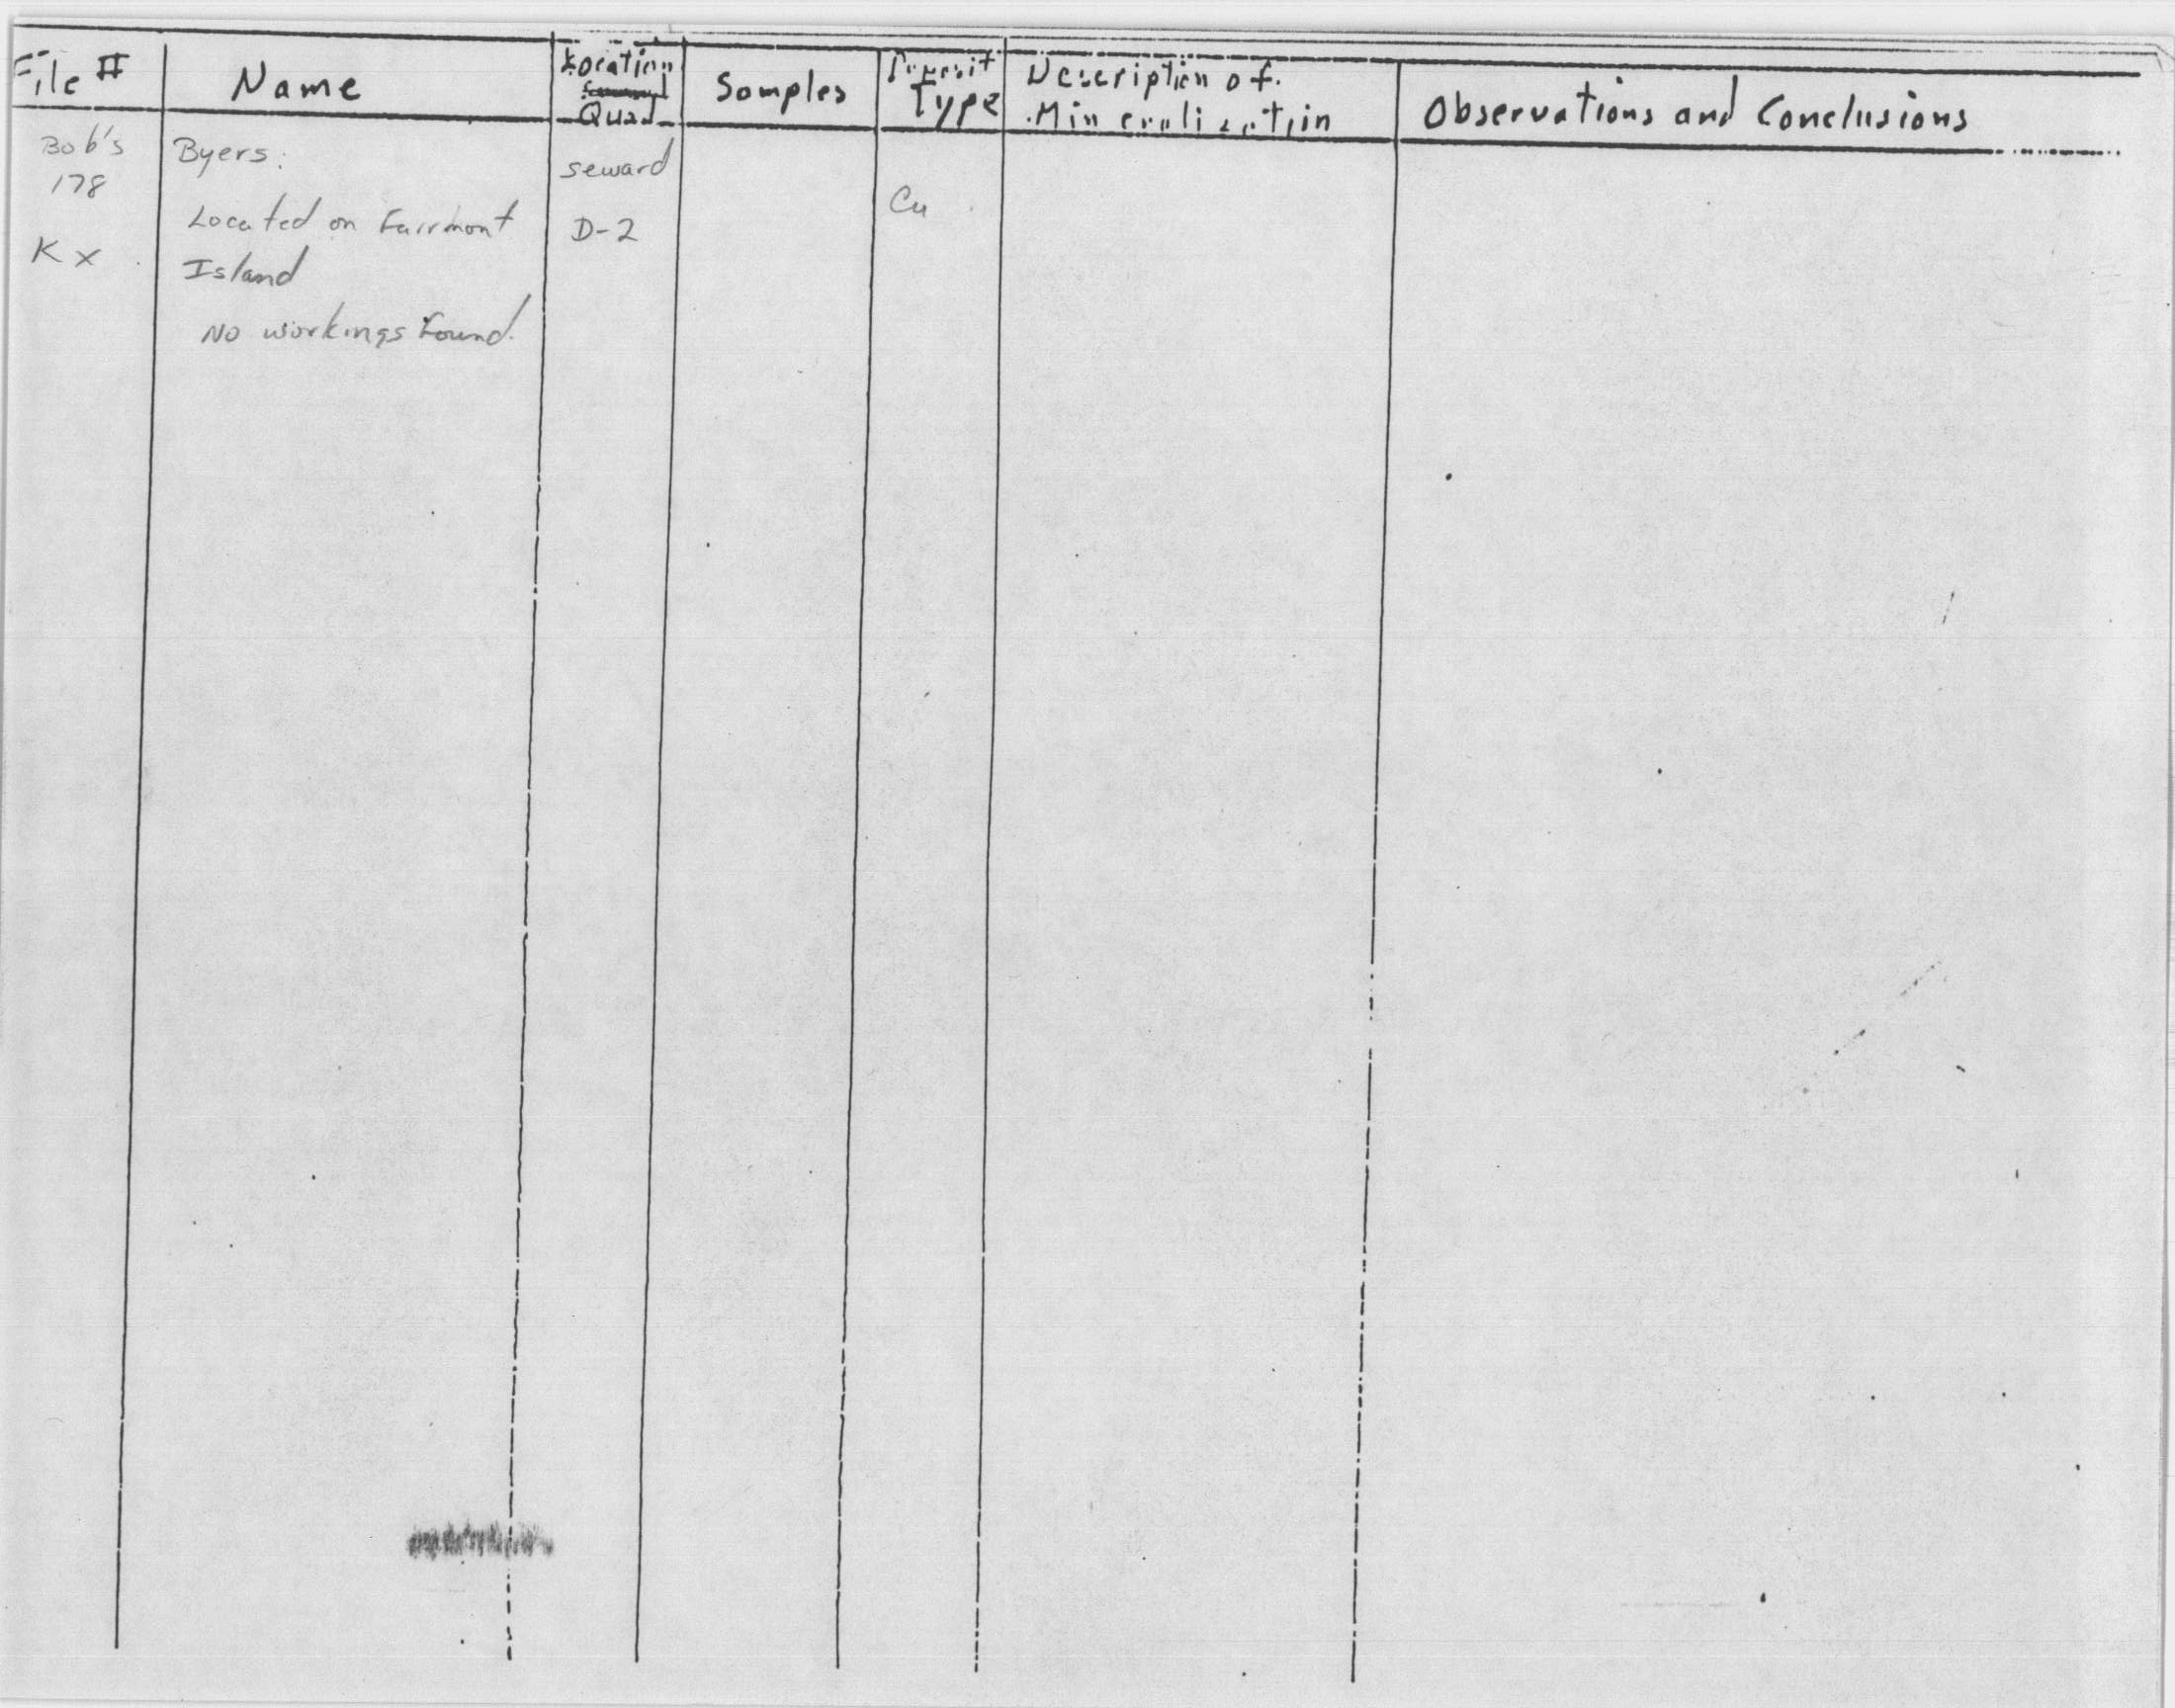 File # Name Location Quad Samples Deposit Type Description of Mineralization Observations and Conclusions
Bob's
178
K x
Byers.
Located on Fairmont
Island
No workings found.
seward
D-2
Cu